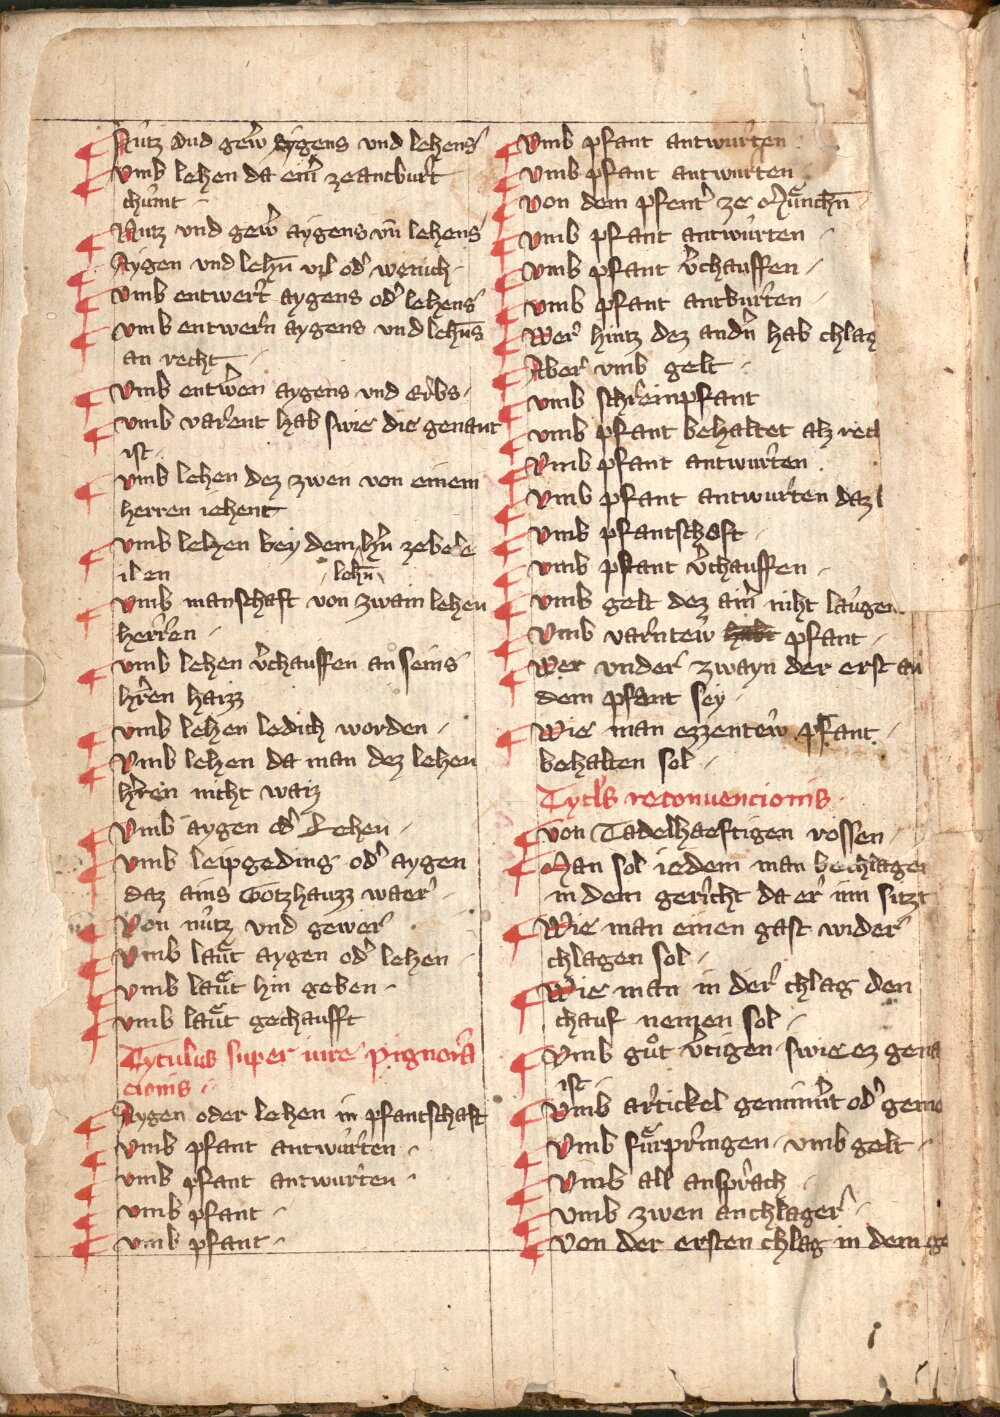 Nutz vnd gew̄ aygens vnd lehens
vmb lehen da em̄ ze antburt
chumt
Nutz vnd gew̄ aygens vn̄ lehens
Aygen vnd lehn̄ vil od' wenich
vmb entwert aygens od' lehens
vmb entwern aygens vnd lehn̄s
an recht
vmb entw̄en aygens vnd erbs
vmb varent hab swie die genant
ist
vmb lehen dez zwen von einem
herren iehent
vmb lehen bey dem hr̄n ze
lehn̄
vmb manschaft von zwain lehen
herren
vmb lehen v̄chauffen an seins
hr̄en haizz
vmb lehen ledich worden
Vmb lehen da man dez lehen
hr̄en nicht waiz
Vmb aygen od' Lehen
Vmb leipgeding od' aygen
daz ains Gotzhauzz waer
Von nutz vnd gewer
Vmb laͤut aygen od' lehen
vmb laͤut hin geben
vmb laͤut gechaufft
Tytulus super iure pignora
cionis
Aygen oder lehen in pfantschaft
vmb pfant antwurten
vmb pfant antwurten
vmb pfant
vmb pfant
Vmb pfant antwurten
vmb pfant antwurten
von dem pfent' ze Muͤnchn̄
vmb pfant antwurten
Vmb pfant v̄chauffen
vmb pfant antburten
Wer hintz dez andn̄ hab chlag
Aber vmb gelt
vmb schreinpfant
vmb pfant behaltet alz recl
Vmb pfant antwurten
Vmb pfant antwurten daz
vmb pfantschaft
vmb pfant v̄chauffen
vmb gelt dez aim̄ niht laugen
Vmb varntew habt pfant
Wer vnder zwayn der erst an
dem pfant sey
Wie man ezzentew pfant
behalten sol
Tytl's reconuencionis
von Tadelhaeftigen rossen
Man sol iedem man bechlagen
in dem gericht da er inn sitzt
Wie man einen gast wider
chlagen sol
Wie man in der chlag den
chauf nemen sol
Vmb guͦt v̄tigen swie ez gena
ist
Vmb artickel gemm̄t od' geme
Vmb fuͤrpringen vmb gelt
Vmb all ansprach
Vmb zwen anchlager
von der ersten chlag in dem ge